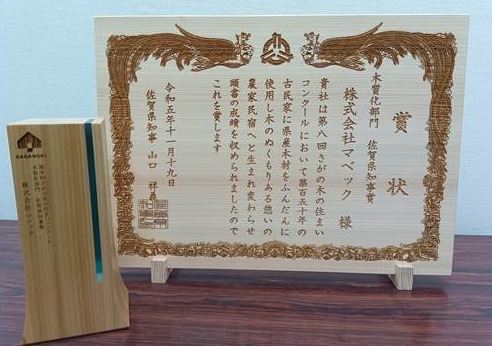 賞状
木質化部門　佐賀県知事賞
株式会社マベック　様
貴社は第八回さがの木の住まい
コンクールにおいて築百五十年の
古民家に県産木材をふんだんに
使用し木のぬくもりある憩いの
農家民宿へと生まれ変わらせ
頭書の成績を収められましたので
これを賞します
令和五年十一月十九日
佐賀県知事　山口　祥
SAGANOKI
株式会社マベック